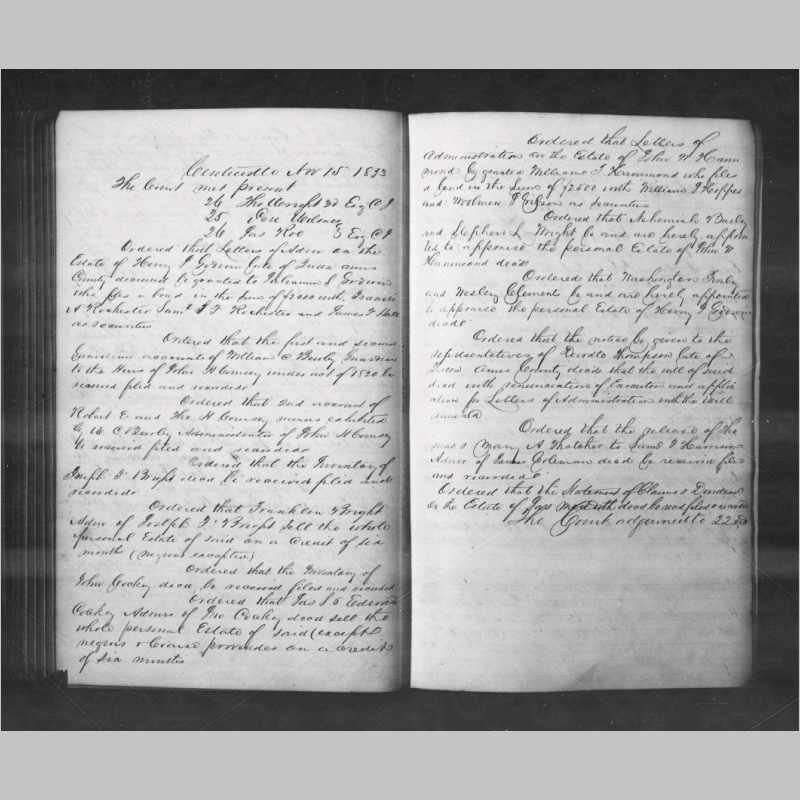 Centreville Nov 15 1853
The Court met present
26 Tho Wright 3d Esq C J
25 Wilmer
26 Jas Roe 3 Esq C J
Ordered that Letters of Admn on the
Estate of Henry T Godwin late of Queen anns
County deceased be granted to S Godwin
who files a bond in the Sum of $2000 with Francis
A Rochester Saml T F Rochester and James
as securities
Ordered that the first and second
Guardian accounts of William C Busly Guardian
to the Heirs of John H Comesy under act of 1820 be
received filed and recorded
Ordered that 2nd account of
Robert E and Tho H Comesy minors exhibited
by W C Busly Administrator of John H Comesy
be received filed and recorded
Ordered that the Inventory of
Joseph T decd be received filed and
recorded
Ordered that Franklin Wright
Admr of Joseph T sell the whole
personal Estate of said on a Credit of six
months (negroes excepted)
Ordered that the Inventory of
John Cockey decd be received filed and recorded
Ordered that Jas S & Edwin
Cockey Admrs of Jno Cockey decd sell the
whole personal Estate of said (except
negros & Coarse provender on a credit
of six months
Ordered that Letters of
Administration on the Estate of John W Ham
mond be granted William T Hammond who files
a bond in the Sum of $2500 with William J Hopper
and Woolman J Gibson as securities
Ordered that Nehemiah
and Stephen L Wright be and are hereby appoin
ted to appraise the personal Estate of John W
Hammond decd
Ordered that Washington Finley
and Wesley Clements be and are hereby appointed
to appraise the personal Estate of Henry T Godwin
decd
Ordered that the notice be given to the
representatives of Thompson late of
Queen Anns County decd that the will of said
decd with renunciation of Executor and applic
ation for Letters of Administration with the will
annexed
Ordered that the release of Tho
mas & Mary A Thatcher to Saml T Harrison
Admr of James Coleman decd be received filed
and recorded
Ordered that the Statement of Claims & Dividend
on the Estate of Jas decd be recd filed & recorded
The Court adjourned to 22nd